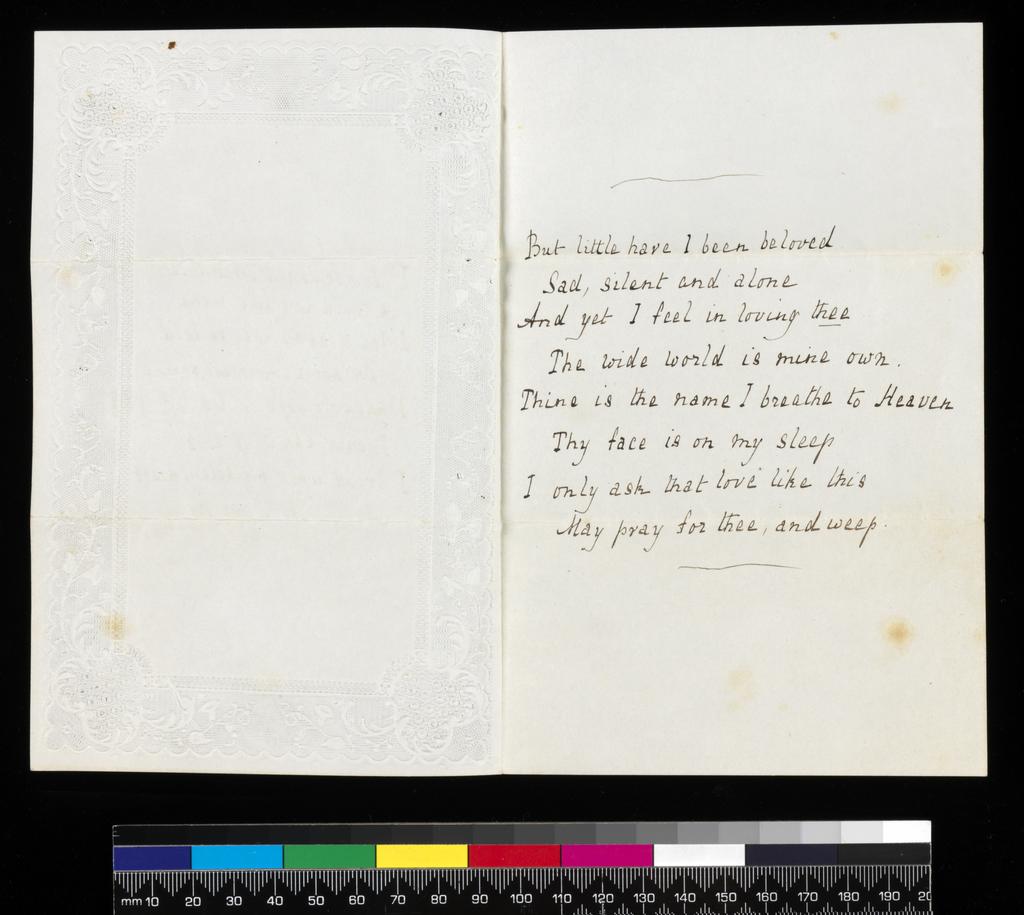 But little have I been beloved
Sad, silent and alone
And yet I feel in loving thee
The wide world is mine own.
Thine is the name I breathe to Heaven
Thy face is on my sleep
I only ask that love like this
May pray for thee, and weep.
mm 10 20 30 40 50 60 70 80 90 100 110 120 130 140 150 160 170 180 190 20